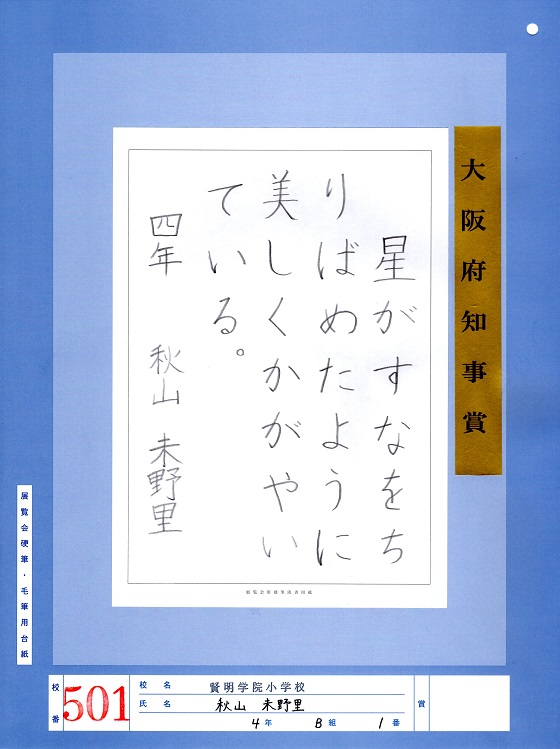 大阪府知事賞
星がすなをち
りばめたように
美しくかがやい
ている。
四年 秋山 未野里
展覧会硬筆・毛筆用台紙
校番 501
校名 賢明学院小学校
氏名 秋山 未野里
4年 B組 1番
賞